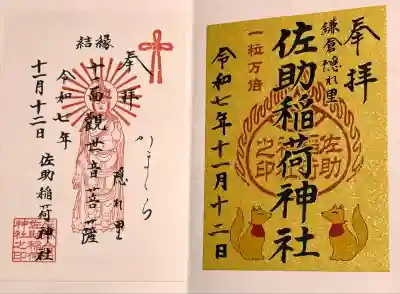 奉拝
鎌倉隠れ里
佐助稲荷神社
一粒万倍
令和七年十一月十二日
佐助
稲荷
神社
之印
奉拝
かまくら
隠れ里
結縁
十一面観世音菩薩
令和七年
十一月十二日
佐助稲荷神社
佐助稲荷
神社之印